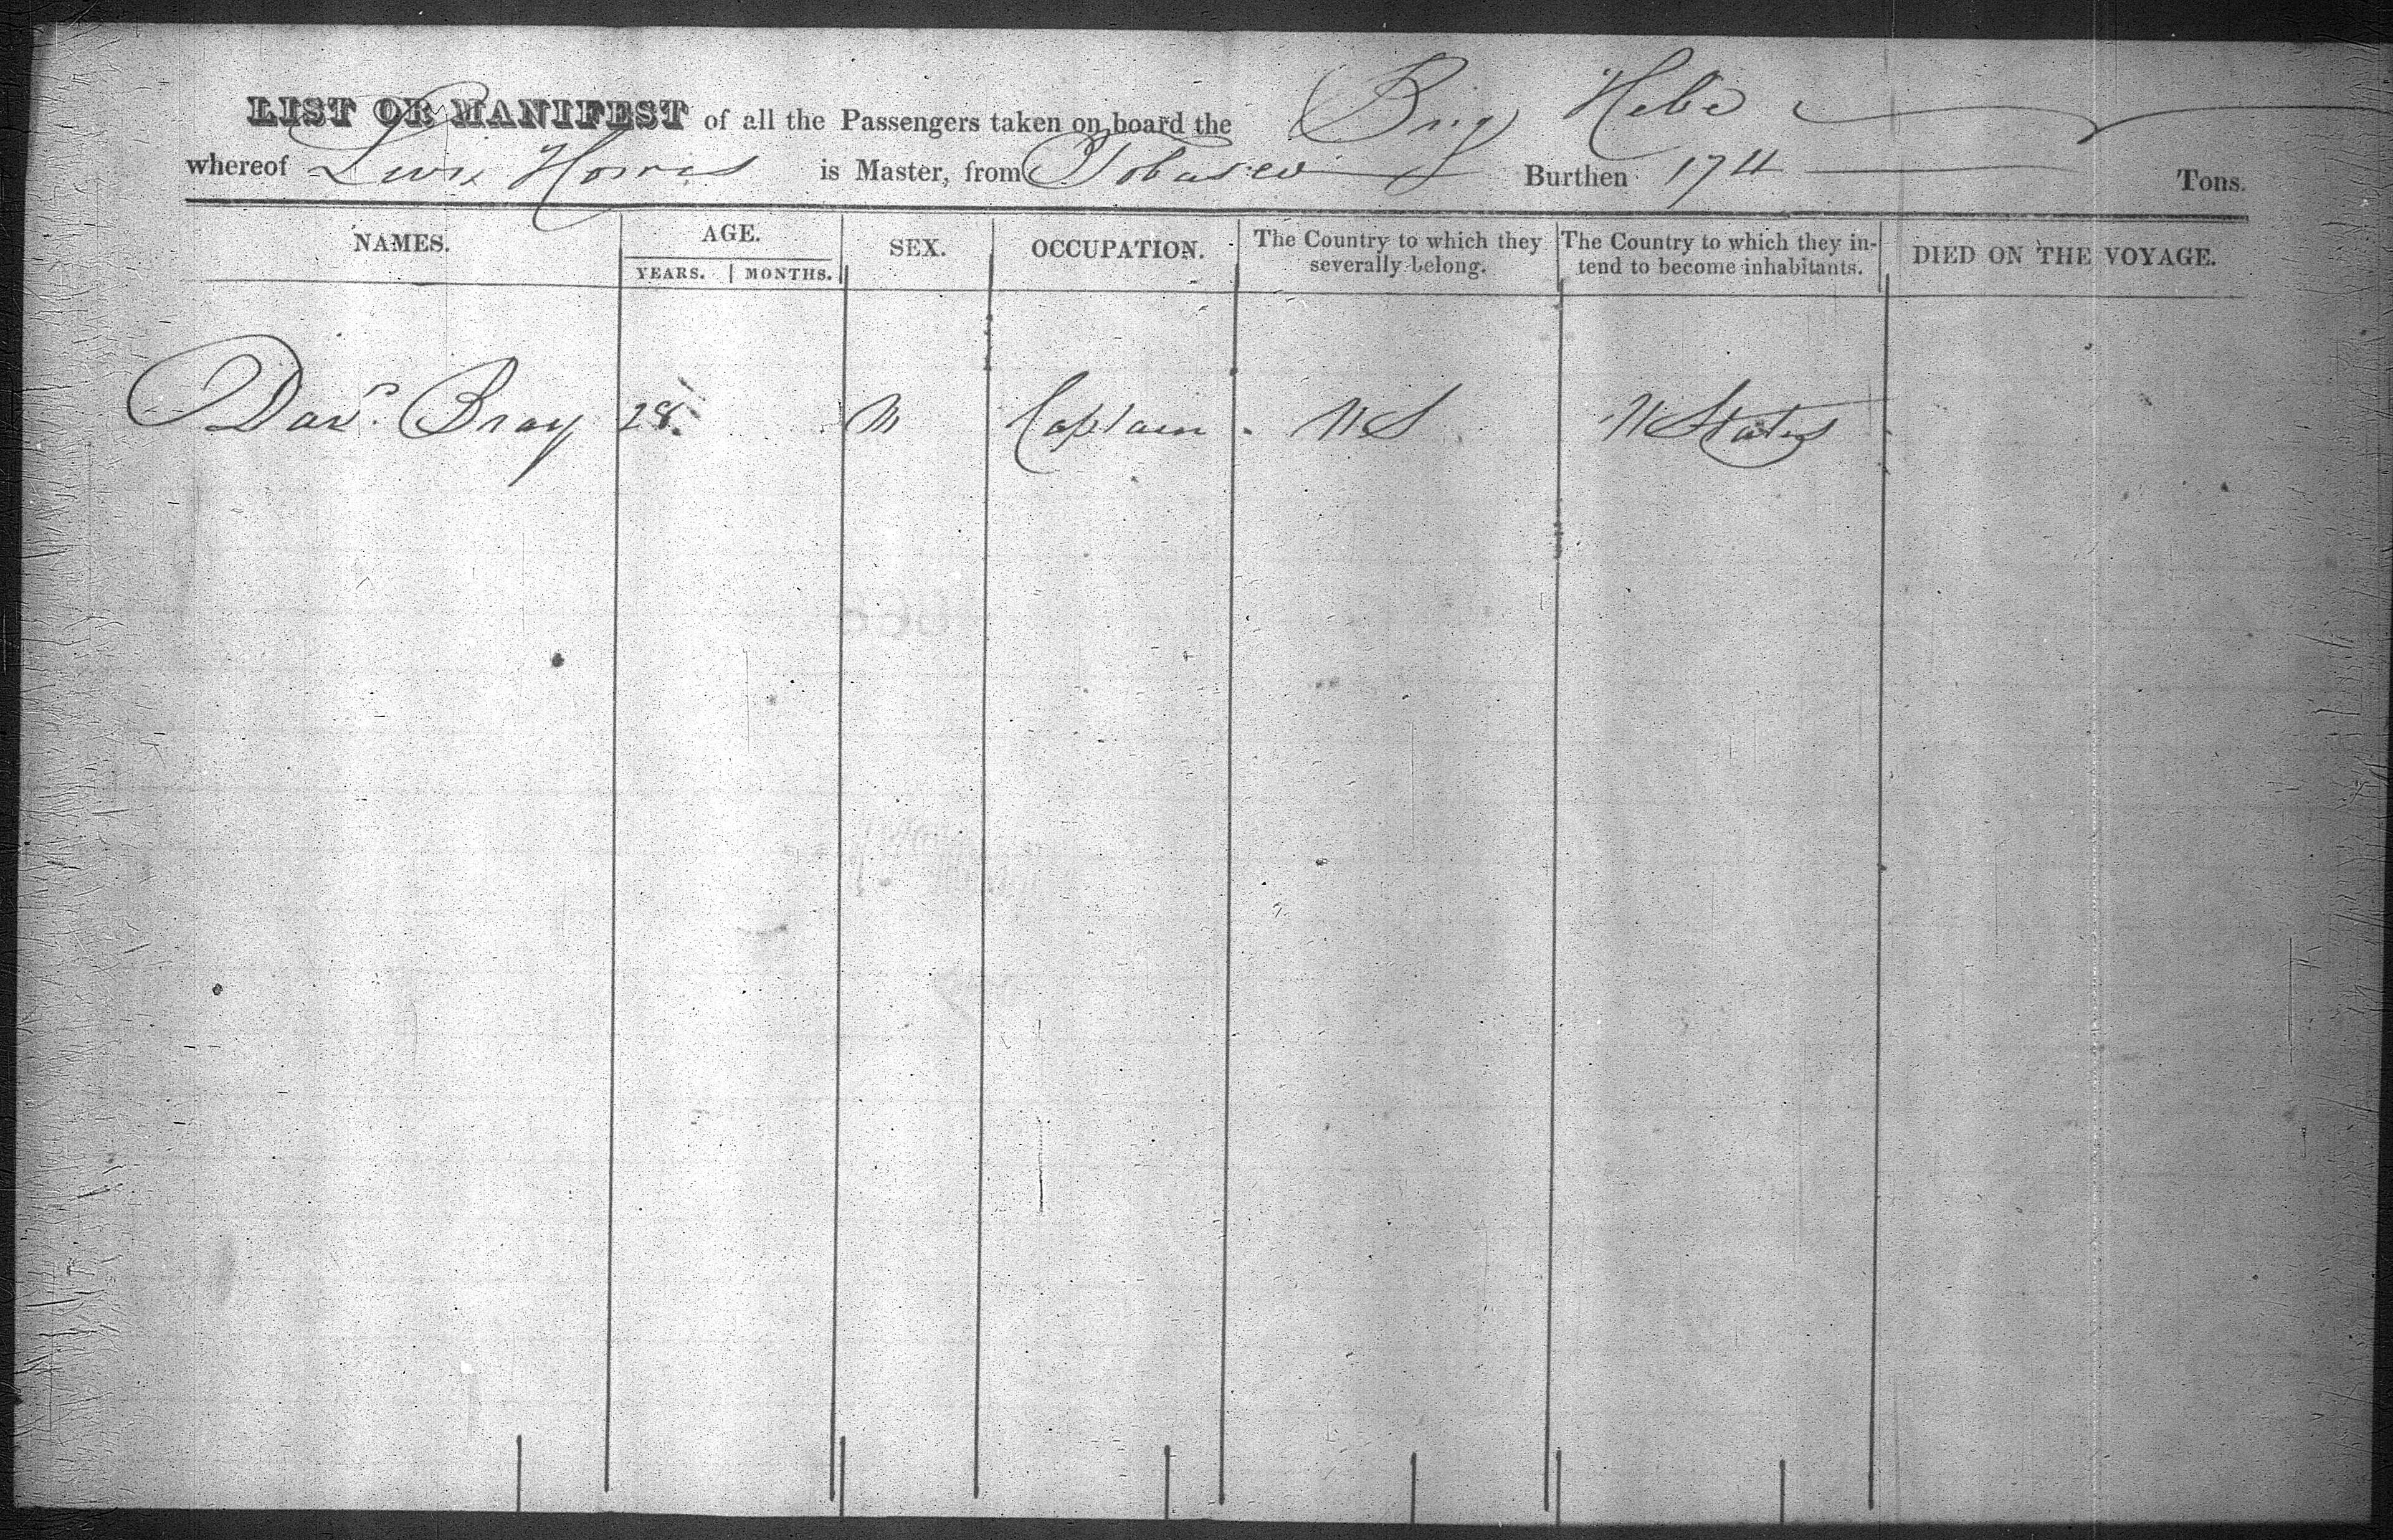 LIST OR MANIFEST of all the Passengers taken on board the Brig Hebe
whereof is Master, from Tobasco Burthen 174 Tons.
NAMES. AGE. SEX. OCCUPATION. The Country to which they severally belong. The Country to which they in-tend to become inhabitants. DIED ON THE VOYAGE.
YEARS. MONTHS.
Davd. Bray 28 M Captain US U States